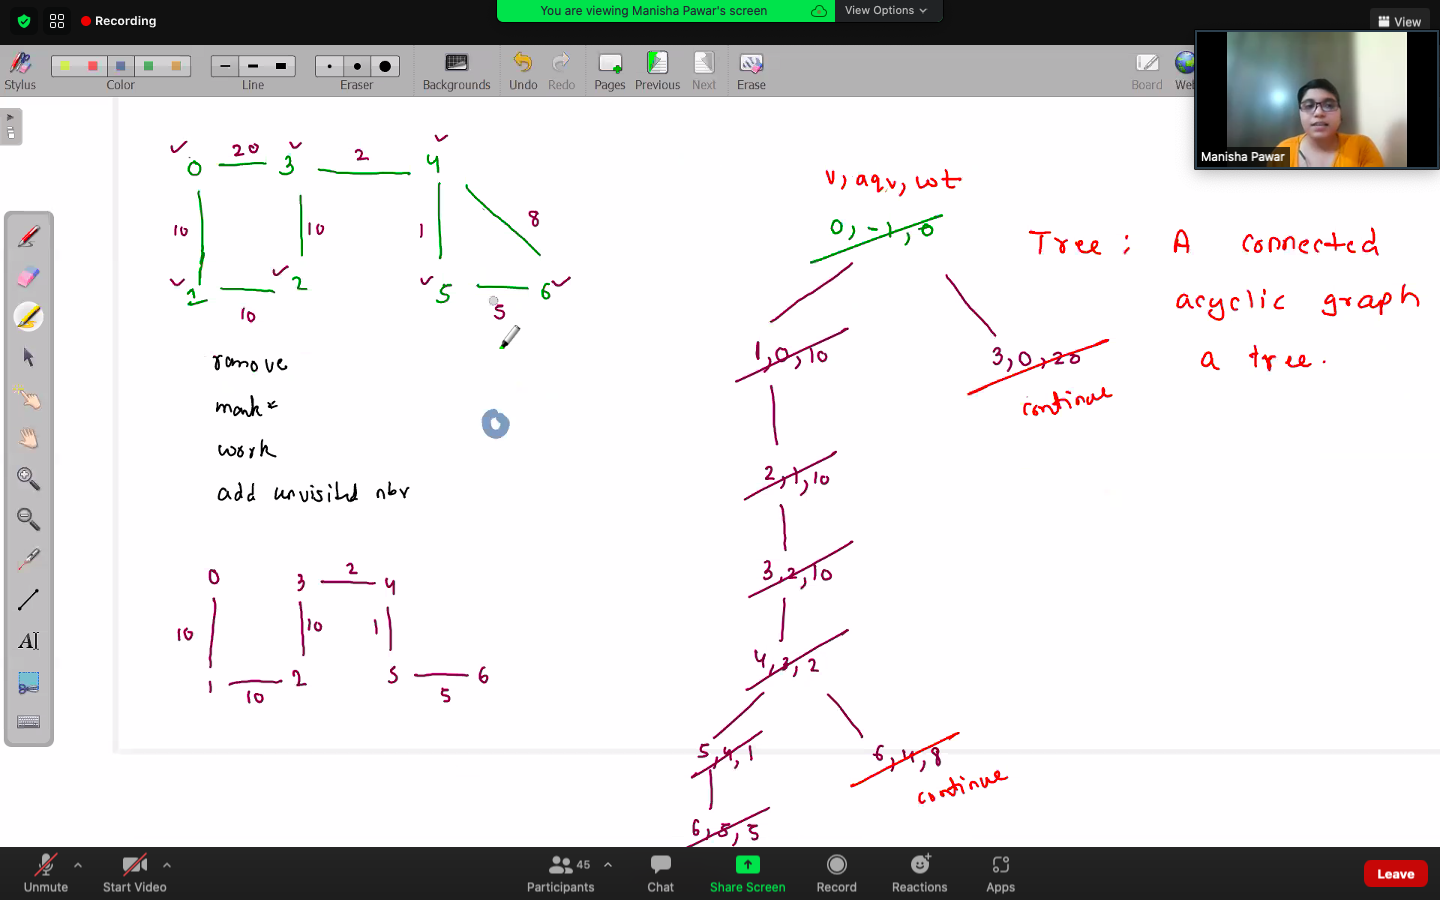 Recording
You are viewing Manisha Pawar's screen
View Options
View
Stylus
Color
Line
Eraser
Backgrounds
Undo
Redo
Pages
Previous
Next
Erase
Board
Manisha Pawar
0 20 3 2 4
10 10 1 8
1 10 2 5 5 6
remove
mark*
work
add unvisited nbr
0 3 2 4
10 10 1
1 10 2 5 5 6
v, aqv, wt
0, -1, 0
1, 0, 10
3, 0, 20
continue
2, 1, 10
3, 2, 10
4, 3, 2
5, 4, 1
6, 4, 8
continue
6, 5, 5
Tree : A connected
acyclic graph
a tree.
A
Unmute
Start Video
Participants
45
Chat
Share Screen
Record
Reactions
Apps
Leave